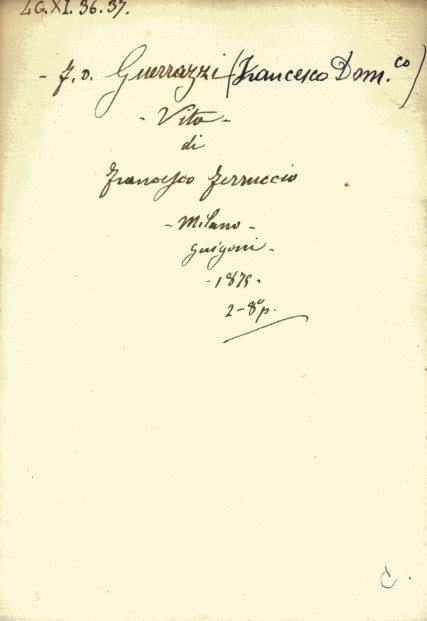 LG.XI.36.37.
- F. D. Guerrazzi (Francesco Dom.co)
- Vita -
di
Francesco Ferruccio
- Milano -
Guigoni -
- 1875 -
2-8° p.
C.